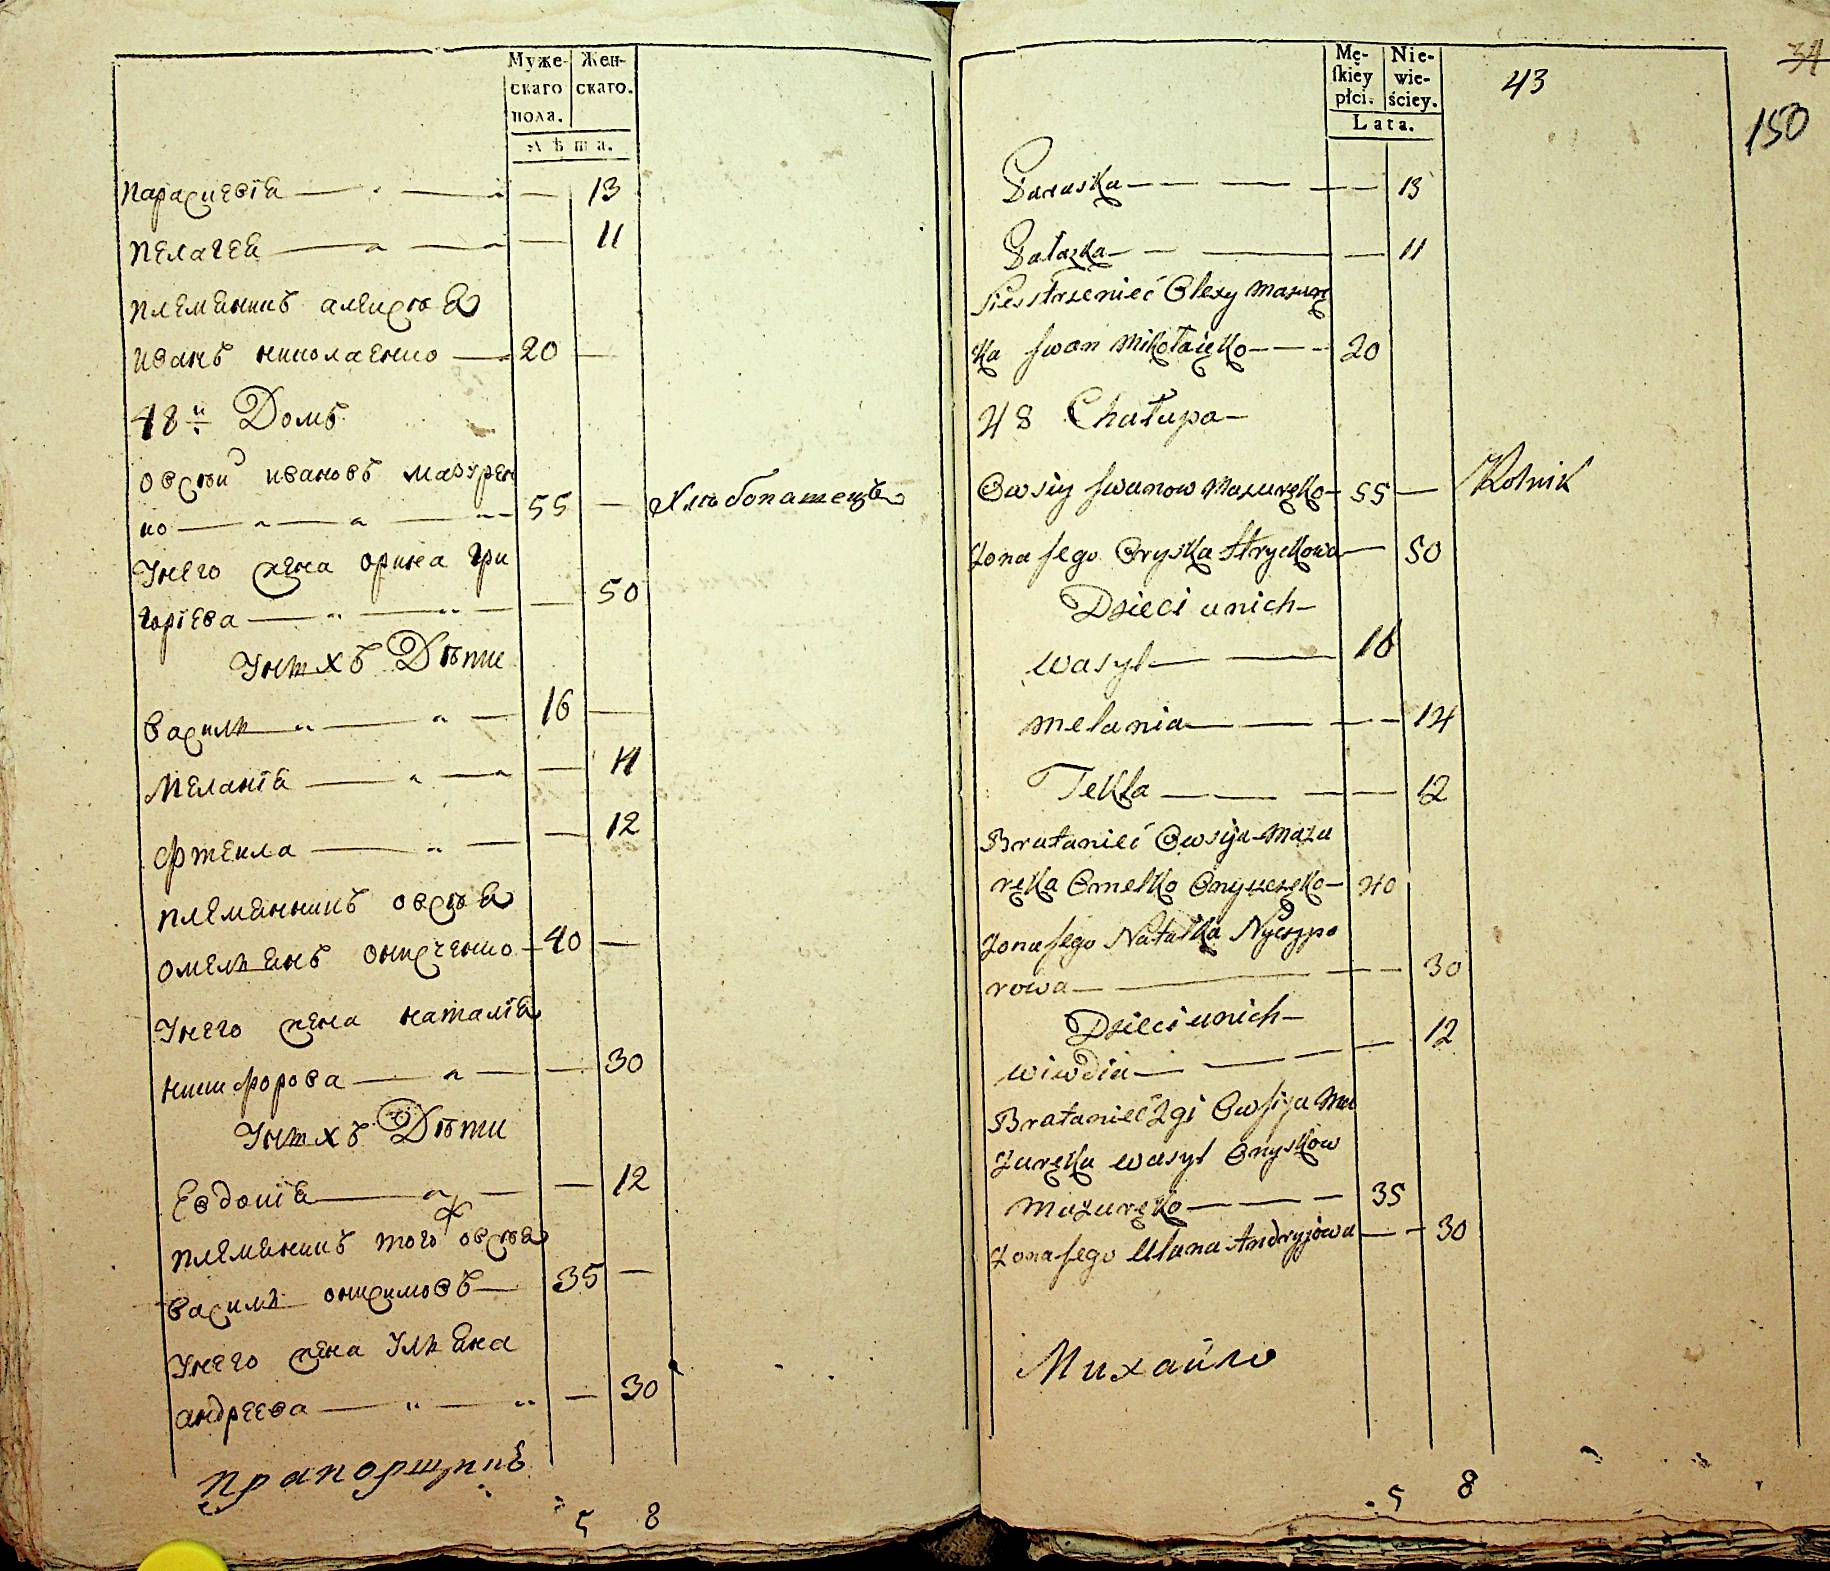 Муже- Жен-
скаго скаго.
пола.
Лѣта.
Парасцевіѧ — — — 13
Пелагеѧ — — — 11
племѧникъ алеиѯѣѧ
иванъ николаенко — 20 —
48й Домъ
овсѣй ивановъ мазурен
ко — — — 55 — Хлѣбопашецъ
Унего жена орина гри
горіева — — — 50
Унихъ Дѣти
василь — — 16 —
Меланіѧ — — — 14
Ѳтекла — — — 12
племѧнникъ овсѣѧ
омельѧнъ онисченко — 40 —
Унего жена наталіѧ
никифорова — — — 30
Унихъ Дѣти
Евдокіѧ — — — 12
племѧникъ того овсѣѧ
василь онисимовъ — 35 —
Унего жена Ульѧна
андреева — — — 30
прапорщикъ
5 8
34
Mę- Nie-
ſkiey wie-
płci. ściey.
43
Lata.
150
Paraska — — — 13
Pałazka — — — 11
Siesstrzenieć Olexy Mazurę
ka Iwan Mikołaięko — — 20
48 Chałupa —
Owsiy Iwanow Mazuręko — 55 — Rolnik
Zona Jego Oryska Hryckowa — 50
Dzieci unich —
Wasyl — — 16
Melania — — — 14
Tekla — — — 12
Bratanieć Owsija Mazu
ręka Omelko Onyszczęko — 40
Zona Jego Natalka Nyczypo
rowa — — — 30
Dzieci unich —
Wiwdia — — — 12
Bratanieć 2gi Owsija Ma
zuręka Wasyl Onyskow
Mazuręko — — 35
Zona Jego Ulana Andryjowa — — 30
Михайло
5 8